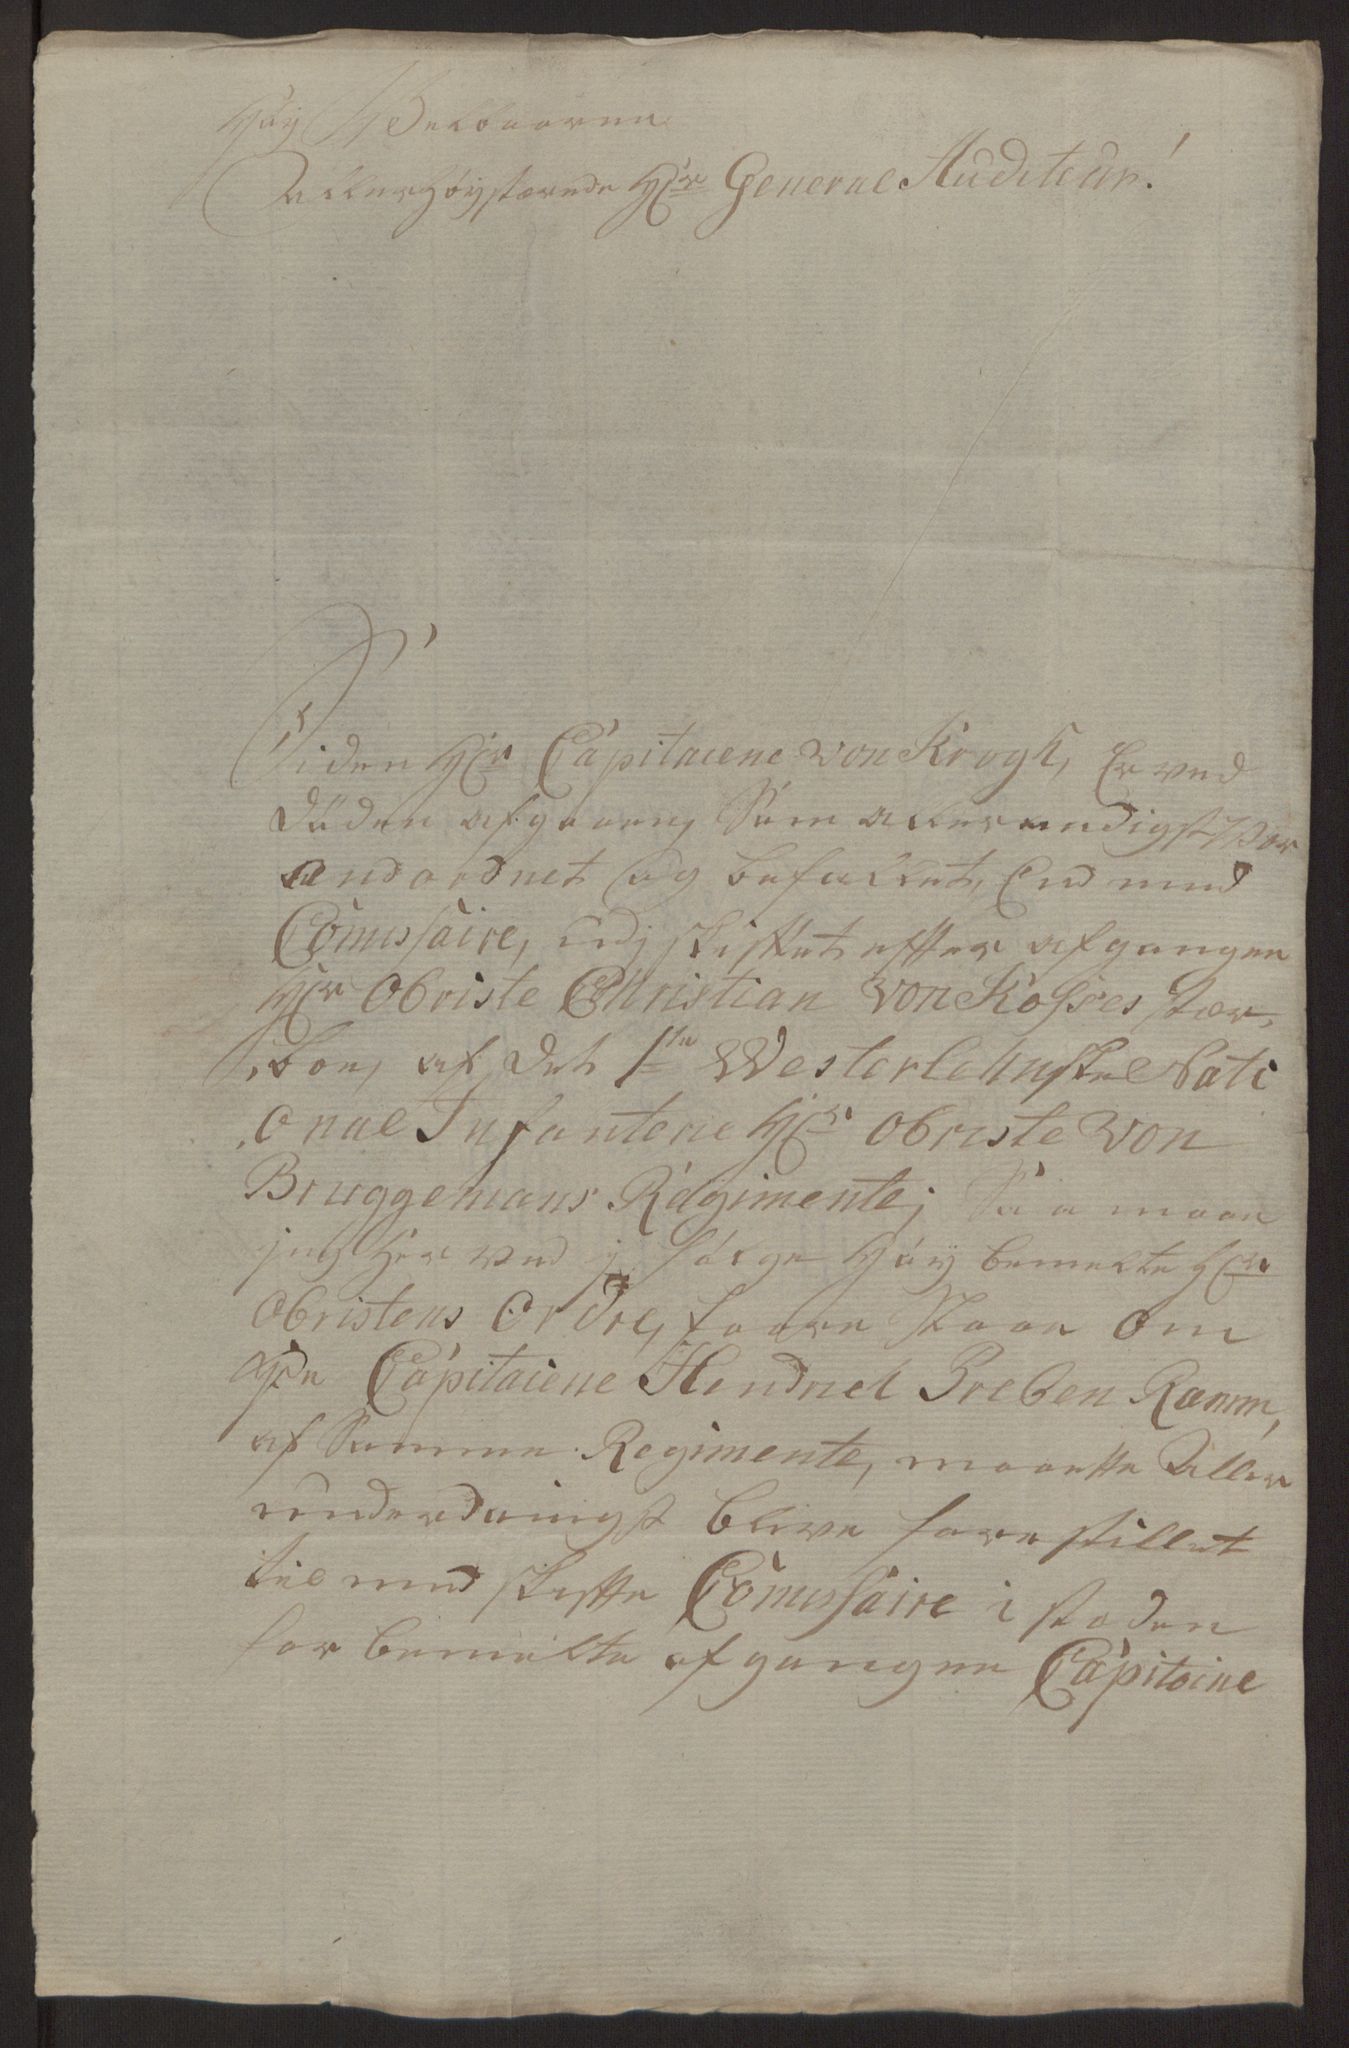 Høy Welbaarne
Aller høystærede Hr General Auditeur!
Siden Hr Capitaiene von Krogh, Er ved
Døden afgaaen, Som allerunderdigst War
andordnet og befallet, End med
Comissaire, udj skiftet effter afgangen
Hr Obriste Christian von Kosses stær,
,boe, af det 1te Westerlehnske Nati
,onal Infanterie Hr Obriste von
Bruggemans Rägimente; Saa maae
jeg her ved j følge høy bemelte Hr
Obristens Ordre, faare slaae Om
Capitaiene Hendrich Preben Ramm,
af Samme Regimente, maatte Aller
underdanigst blive fore stillet
til med skiffte Comissaire i stæden
for bemelte afgangne Capitaine